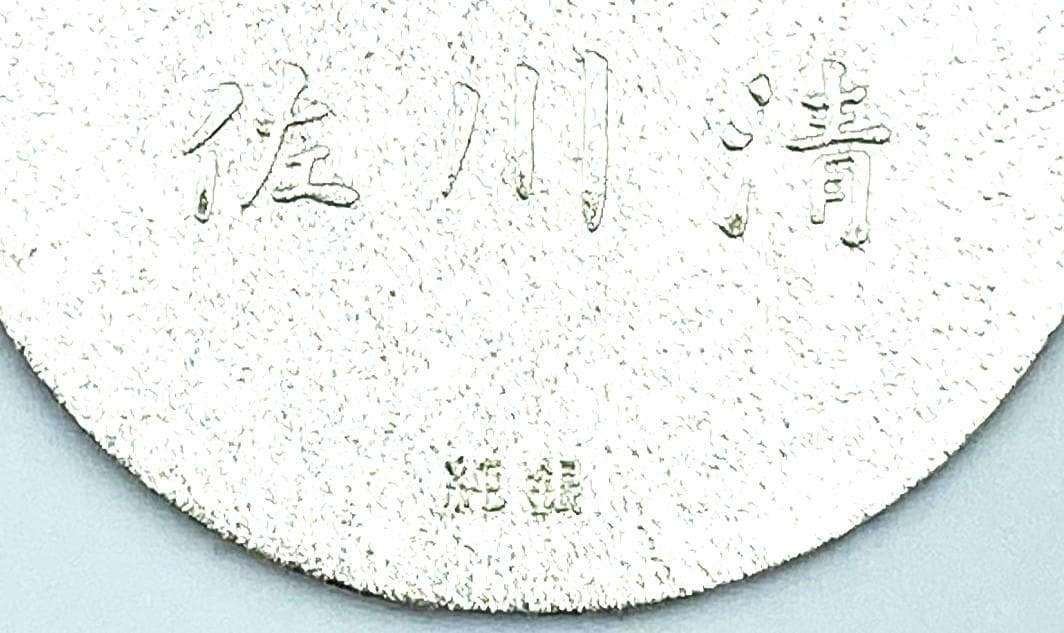 佐川清
純銀